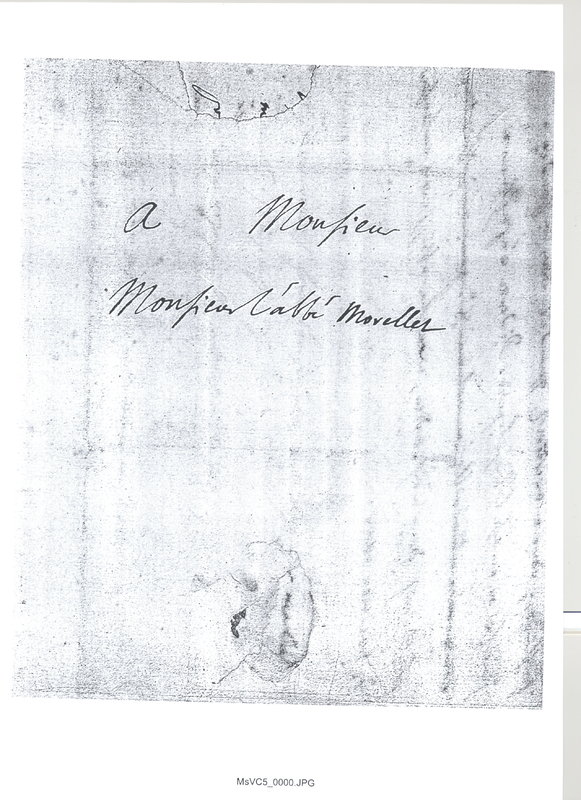 A Monsieur
Monsieur l'abbé Morellet
MsVC5_0000.JPG